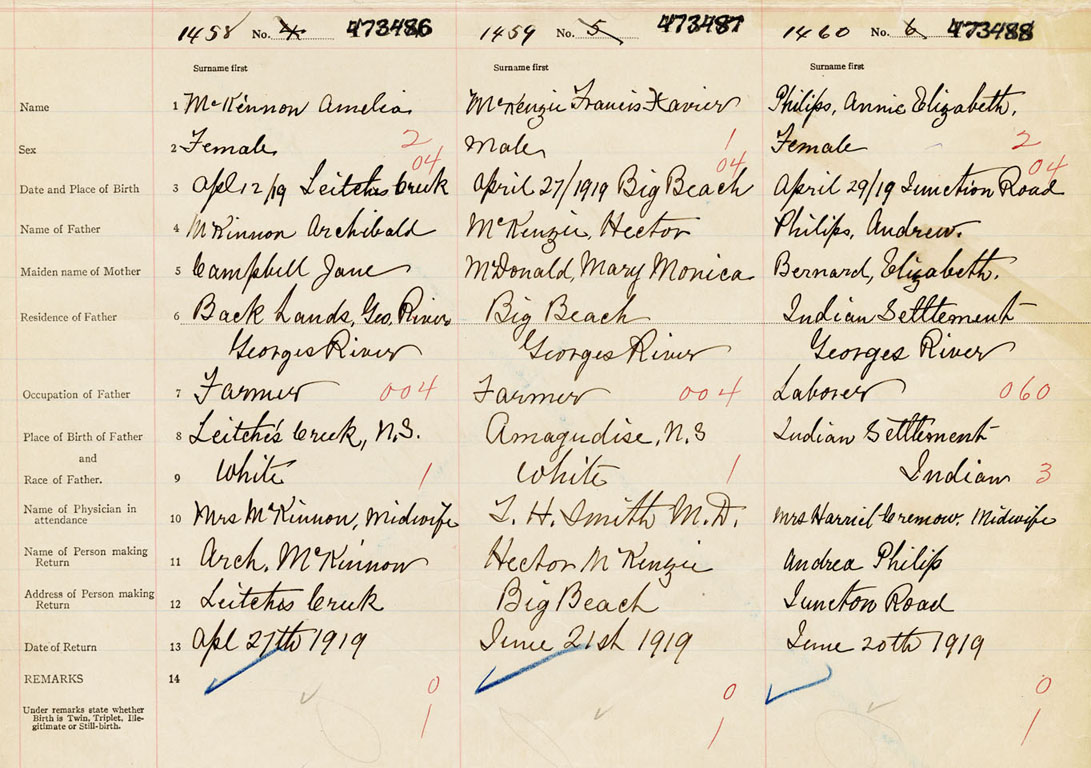 1458 No. 4 473486 1459 No. 5 473487 1460 No. 6 473488
Surname first Surname first Surname first
Name 1 McKinnon Amelia McKenzie Francis Xavier Philips, Annie Elizabeth.
Sex 2 Female 2 Male 1 Female 2
04 04 04
Date and Place of Birth 3 Apl 12/19 Leitches Creek April 27/1919 Big Beach April 29/19 Junction Road
Name of Father 4 McKinnon Archibald McKenzie, Hector Philips, Andrew.
Maiden name of Mother 5 Campbell Jane McDonald, Mary Monica Bernard, Elizabeth.
Residence of Father 6 Back Lands, Geo. River Big Beach Indian Settlement
Georges River Georges River Georges River
Occupation of Father 7 Farmer 004 Farmer 004 Laborer 060
Place of Birth of Father 8 Leitches Creek, N.S. Amagudise, N.S Indian Settlement
and
Race of Father. 9 White 1 White 1 Indian 3
Name of Physician in
attendance 10 Mrs McKinnon, Midwife T. H. Smith M.D. Mrs Harriel Cremow. Midwife
Name of Person making
Return 11 Arch. McKinnon Hector McKenzie Andrea Philip
Address of Person making
Return 12 Leitches Creek Big Beach Juncton Road
Date of Return 13 Apl 27th 1919 June 21st 1919 June 20th 1919
REMARKS 14 0 0 0
Under remarks state whether
Birth is Twin, Triplet, Ille-
gitimate or Still-birth. 1 1 1